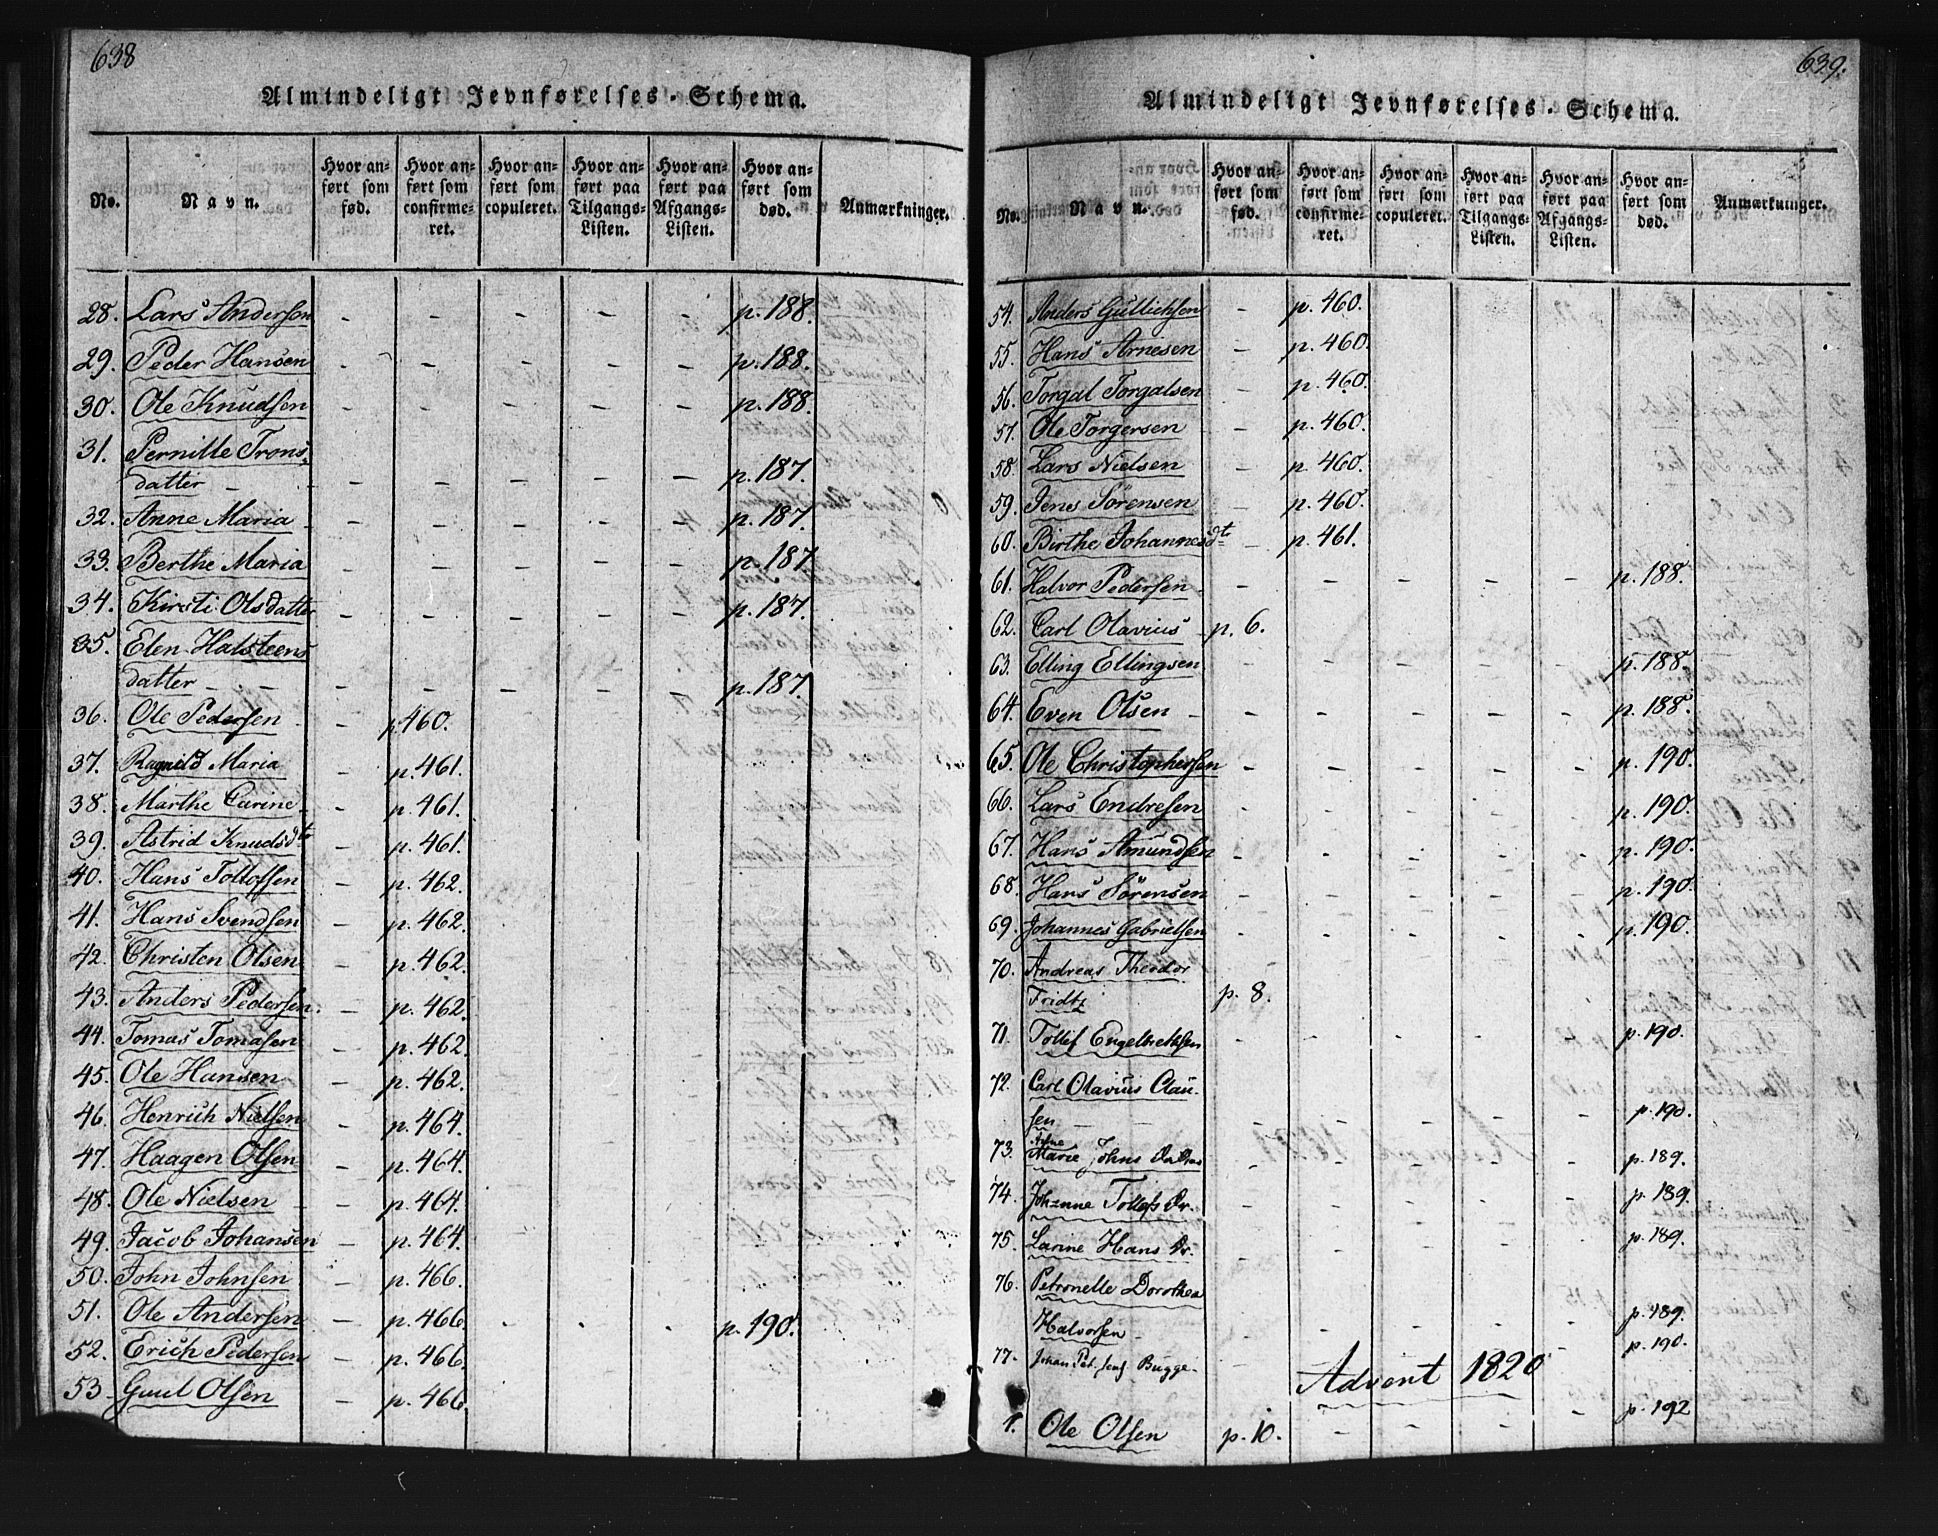 638
Almindeligt Jevnførelses-Schema.
No. Navn. Hvor anført som fød. Hvor anført som confirmeret. Hvor anført som copuleret. Hvor anført paa Tilgangs-Listen. Hvor anført paa Afgangs-Listen. Hvor anført som død. Anmærkninger.
28. Lars Andersen - - - - - p. 188.
29. Peder Hansen - - - - - p. 188.
30. Ole Knudsen - - - - - p. 188.
31. Pernille Trons-
datter - - - - - - p. 187.
32. Anne Maria - - - - - p. 187.
33. Berthe Maria - - - - - p. 187
34. Kirsti Olsdatter - - - - - p. 187.
35. Elen Halsteens
datter - - - - - - - p. 187.
36. Ole Pedersen - p. 460.
37. Ragnild Maria - p. 461.
38. Marthe Carine - p. 461.
39. Astrid Knudsdtr - p. 461.
40. Hans Tollofsen - p. 462.
41. Hans Svendsen - p. 462.
42. Christen Olsen - p. 462.
43. Anders Pedersen. - p. 462.
44. Tomas Tomasen - p. 462.
45. Ole Hansen - p. 462.
46. Henrich Nielsen - p. 464.
47. Haagen Olsen - p. 464.
48. Ole Nielsen - p. 464.
49. Jacob Johansen - p. 464.
50. John Johnsen - p. 466.
51. Ole Andersen - p. 466. - - - p. 190.
52. Erich Pedersen - p. 466.
53. Guul Olsen - p. 466.
639.
Almindeligt Jevnførelses-Schema.
No. Navn. Hvor anført som fød. Hvor anført som confirmeret. Hvor anført som copuleret. Hvor anført paa Tilgangs-Listen. Hvor anført paa Afgangs-Listen. Hvor anført som død. Anmærkninger.
54. Anders Gullichsen - p. 460.
55. Hans Arnesen - p. 460.
56. Torgal Torgalsen - p. 460.
57. Ole Torgersen - p. 460.
58. Lars Nielsen - p. 460.
59. Jens Sörensen - p. 460.
60. Birthe Johannesdt - p. 461.
61. Halvor Pedersen. - - - - - p. 188.
62. Carl Olavius p. 6.
63. Elling Ellingsen - - - - - p. 188.
64. Even Olsen - - - - - p. 188.
65. Ole Christophersen - - - - - p. 190.
66. Lars Endresen - - - - - p. 190.
67. Hans Amundsen - - - - - p. 190.
68. Hans Sörensen - - - - - p. 190.
69. Johannes Gabrielsen - - - - - p. 190.
70. Andreas Theodor
Fridtz p. 8.
71. Tollef Engelbrethsen - - - - - p. 190.
72. Carl Olavius Clau-
sen - - - - - - p. 190.
73. Anne Marie Johns - - - - - p. 189.
74. Johanne Tollefs Dr. - - - - - p. 189.
75. Larine Hans Dr. - - - - - p. 189.
76. Petronelle Dorothea
Halvorsen - - - - - p. 189.
77. Johan Pet. Bugge - - p. 190.
Advent 1820
1. Ole Olsen p. 10. - - - - p. 192